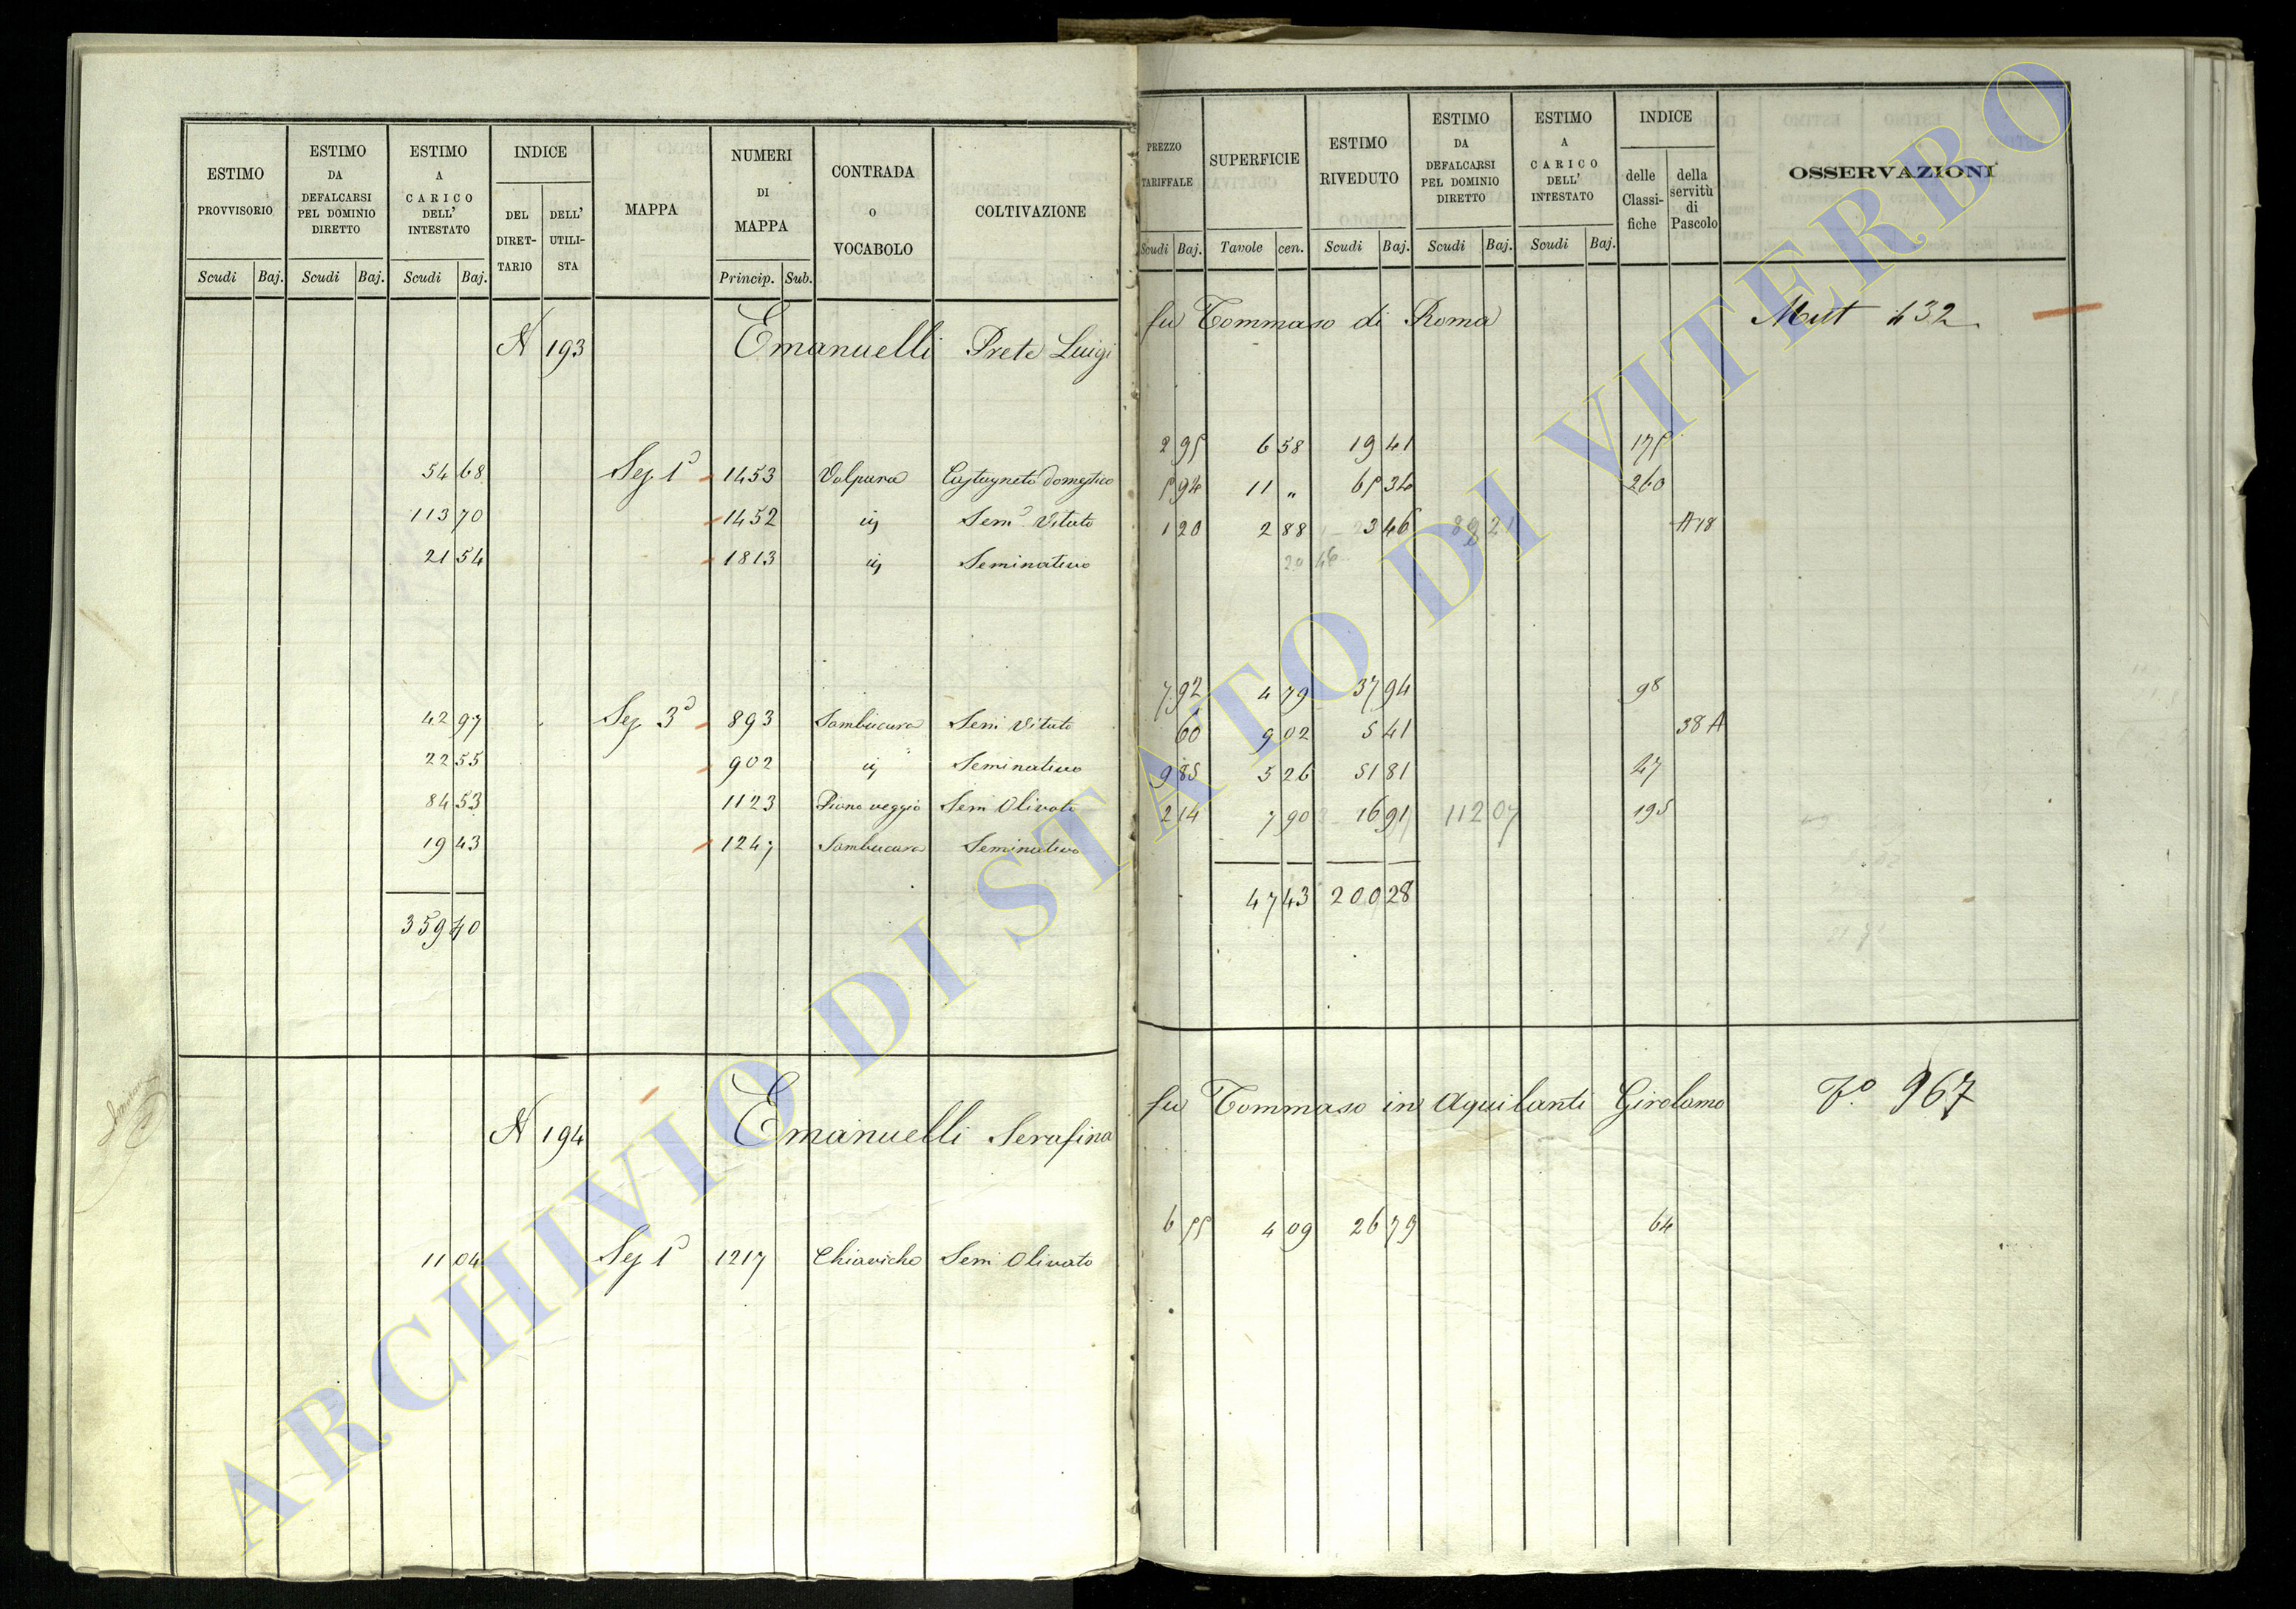 ESTIMO PROVVISORIO
ESTIMO DA DEFALCARSI PEL DOMINIO DIRETTO
ESTIMO A CARICO DELL' INTESTATO
INDICE
DEL DIRET-TARIO
DELL' UTILI-STA
MAPPA
NUMERI DI MAPPA
CONTRADA o VOCABOLO
COLTIVAZIONE
Scudi Baj. Scudi Baj. Scudi Baj. Princip. Sub.
PREZZO TARIFFALE
SUPERFICIE
ESTIMO RIVEDUTO
ESTIMO DA DEFALCARSI PEL DOMINIO DIRETTO
ESTIMO A CARICO DELL' INTESTATO
INDICE
delle Classi-fiche
della servitù di Pascolo
OSSERVAZIONI
Scudi Baj. Tavole cen. Scudi Baj. Scudi Baj. Scudi Baj.
N 193 Emanuelli Prete Luigi fu Tommaso di Roma Mut 432
54 68 Sez. 1ª 1453 Volpara Castagneto domestico 2 95 6 58 19 41 175
113 70 1452 iij Semº Vitato 5 94 11 " 65 34 260
21 54 1813 iij Seminativo 1 20 2 88 3 46 A 18
20 46
42 97 Sez. 3ª 893 Sambucara Sem Vitato 7 92 4 79 37 94 98
22 55 902 ij Seminativo 60 9 02 5 41 38 A
84 53 1123 Piano veggio Sem Olivato 9 85 5 26 51 81 47
19 43 1247 Sambucara Seminativo 2 14 7 90 16 91 112 07 195
359 40 47 43 200 28
N 194 Emanuelli Serafina fu Tommaso in Aquilanti Girolamo Fº 967
11 04 Sez 1ª 1217 Chiaviche Sem Olivato 6 55 4 09 26 79 64
ARCHIVIO DI STATO DI VITERBO